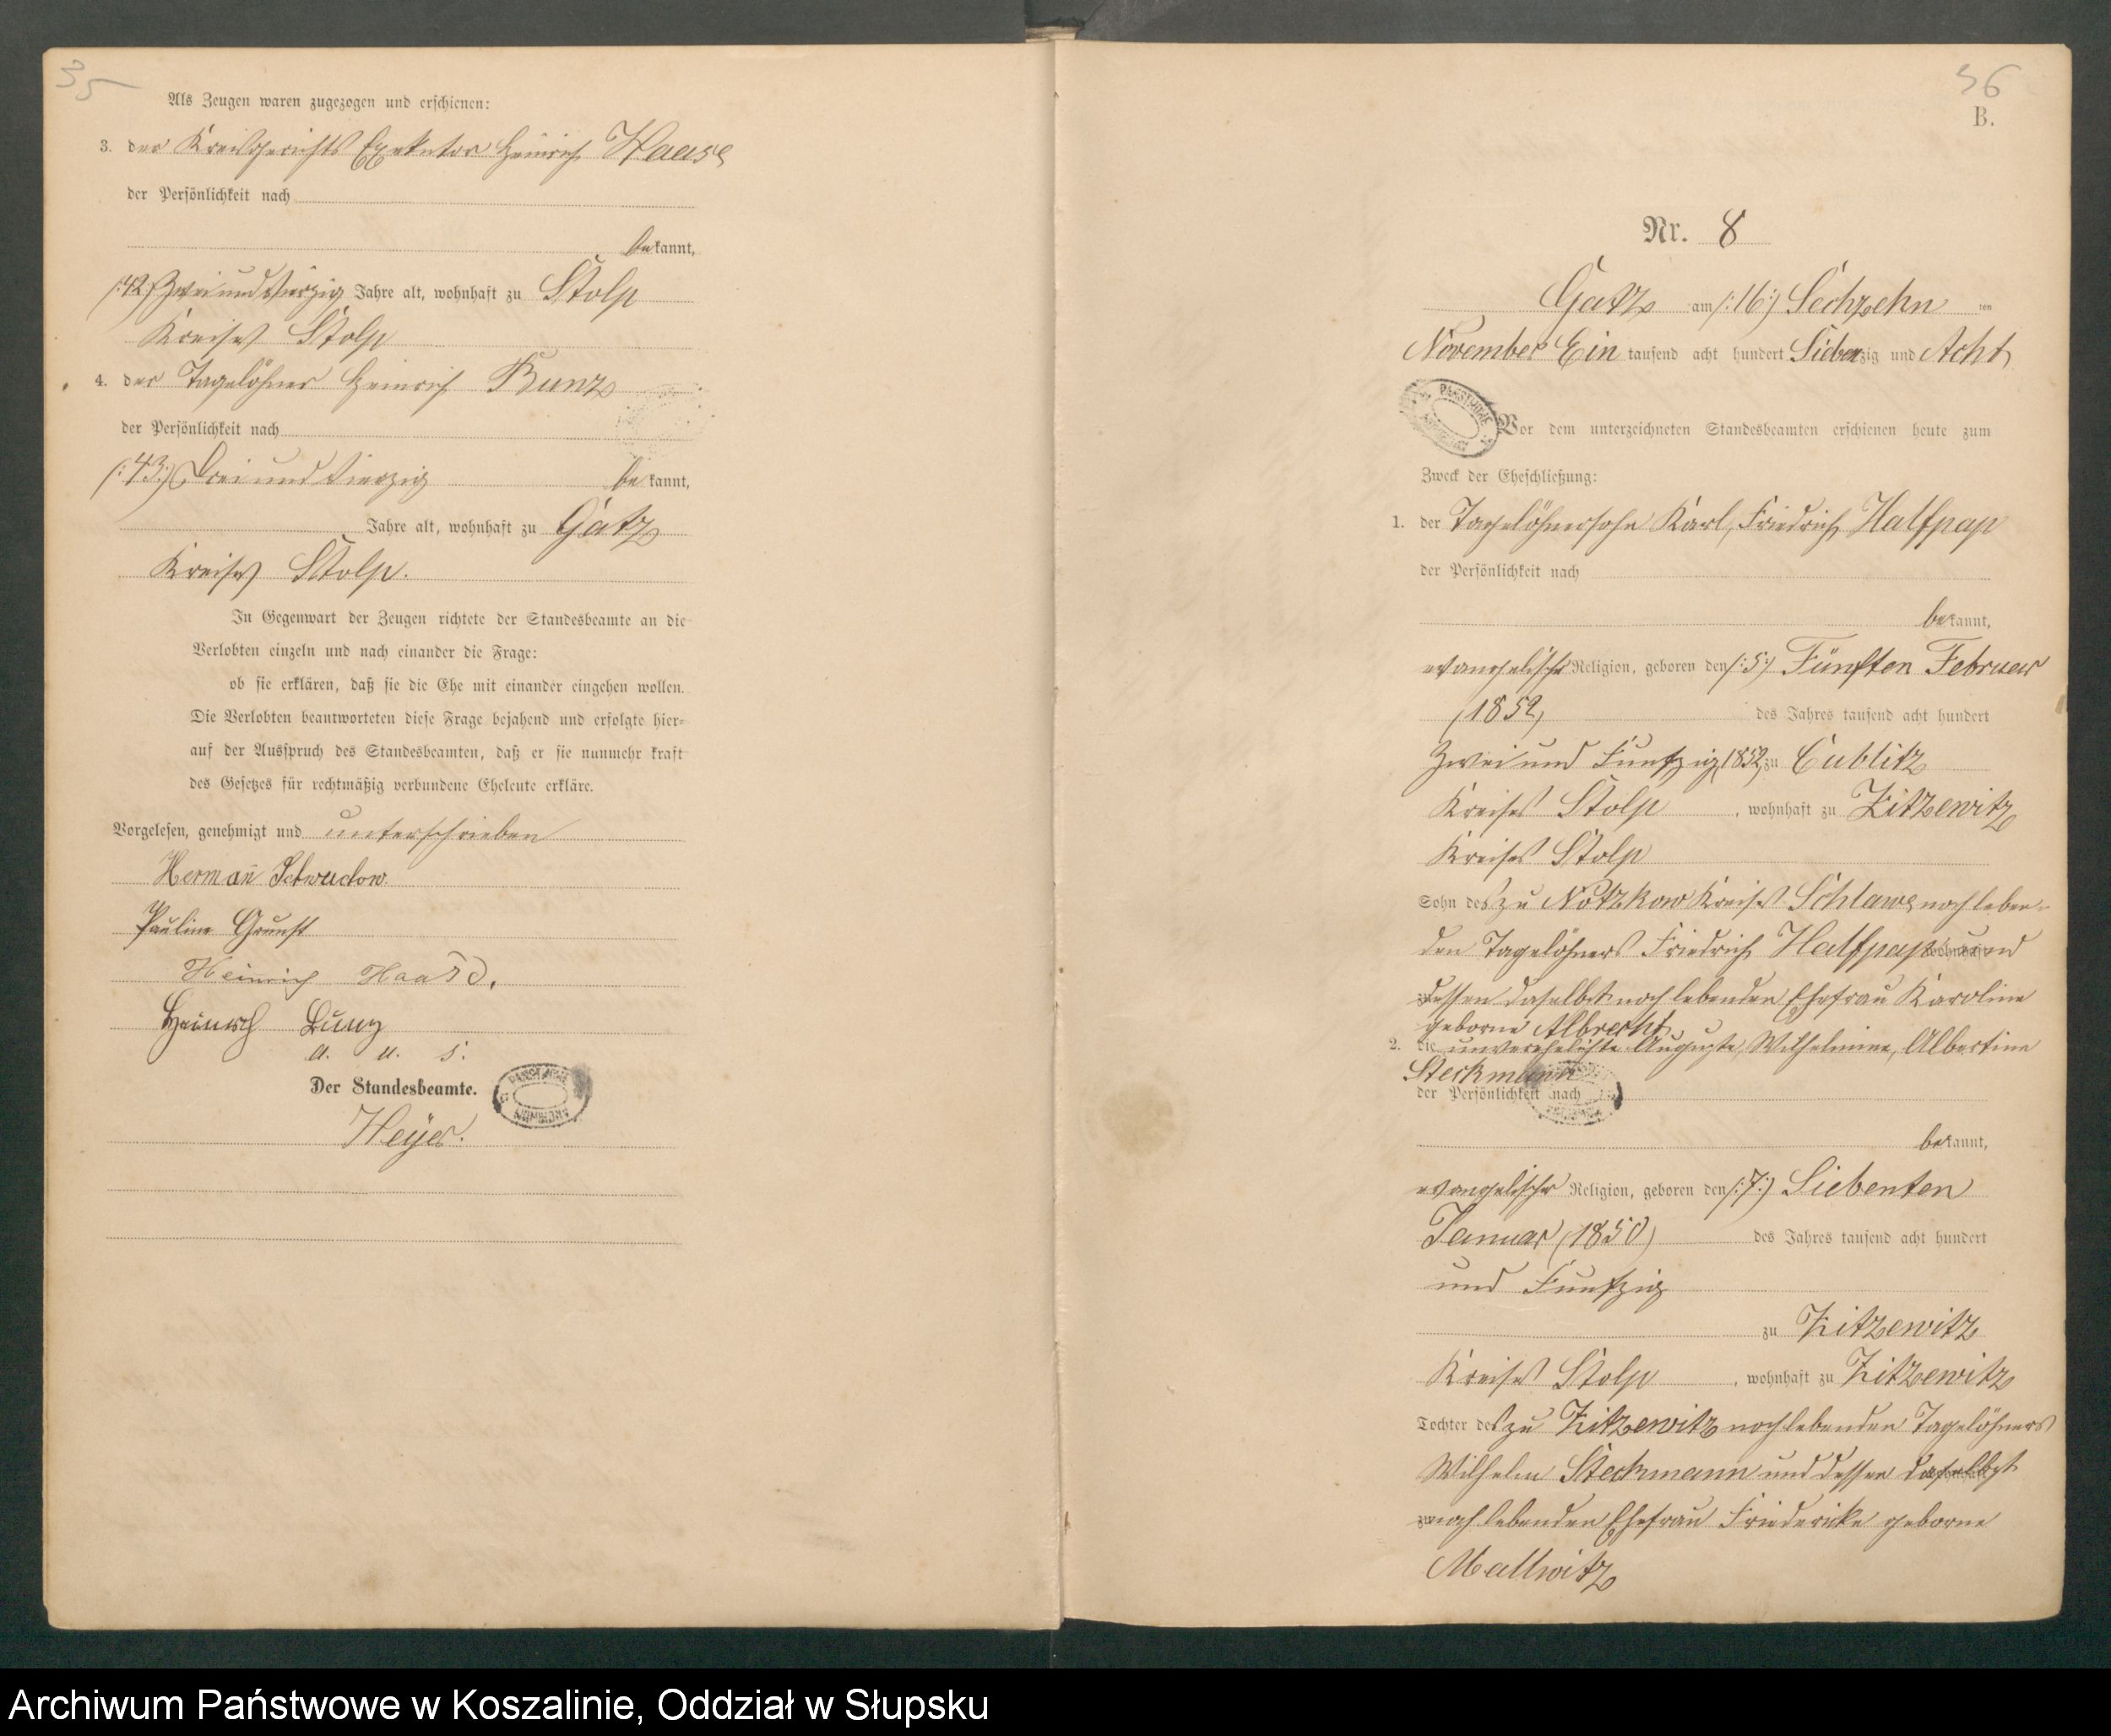 35
Als Zeugen waren zugezogen und erschienen:
3. der Kreisgerichts Exekutor Heinrich Haase
der Persönlichkeit nach
bekannt,
(:42:) Zwei und Vierzig Jahre alt, wohnhaft zu Stolp
Kreises Stolp
4. der Tagelöhner Heinrich Bunz
der Persönlichkeit nach
(:43:) Drei und Vierzig bekannt,
Jahre alt, wohnhaft zu Gatz
Kreises Stolp.
In Gegenwart der Zeugen richtete der Standesbeamte an die
Verlobten einzeln und nach einander die Frage:
ob sie erklären, daß sie die Ehe mit einander eingehen wollen.
Die Verlobten beantworteten diese Frage bejahend und erfolgte hier-
auf der Ausspruch des Standesbeamten, daß er sie nunmehr kraft
des Gesetzes für rechtmäßig verbundene Eheleute erkläre.
Vorgelesen, genehmigt und unterschrieben
Hermañ
Pauline Grunst
Heinrich Haase.
Heinrich Bunz
a. u. s.
Der Standesbeamte.
Heyer.
36
B.
Nr. 8
Gatz am (:16:) Sechzehn ten
November Ein tausend acht hundert Siebenzig und Acht
Vor dem unterzeichneten Standesbeamten erschienen heute zum
Zweck der Eheschließung:
1. der Tagelöhnersohn Karl, Friedrich Halfpap
der Persönlichkeit nach
bekannt,
evangelischer Religion, geboren den (:5:) Fünften Februar
(1852) des Jahres tausend acht hundert
Zwei und Funfzig (1852) zu Cublitz
Kreises Stolp, wohnhaft zu Zitzewitz
Kreises Stolp
Sohn des zu Nötzkow Kreises Schlawe noch leben-
den Tagelöhners Friedrich Halfpap wohnhaft und
zu dessen daselbst noch lebenden Ehefrau Karoline
geborne Albrecht
2. die unverehelichte Auguste, Wilhelmine, Albertine
Steckmann
der Persönlichkeit nach
bekannt,
evangelischer Religion, geboren den (:7:) Siebenten
Januar (1850) des Jahres tausend acht hundert
und Funfzig
zu Zitzewitz
Kreises Stolp, wohnhaft zu Zitzewitz
Tochter des zu Zitzewitz noch lebenden Tagelöhners
Wilhelm Steckmann und dessen daselbst wohnhaft
zu noch lebenden Ehefrau Friedericke geborne
Mallwitz
Archiwum Państwowe w Koszalinie, Oddział w Słupsku